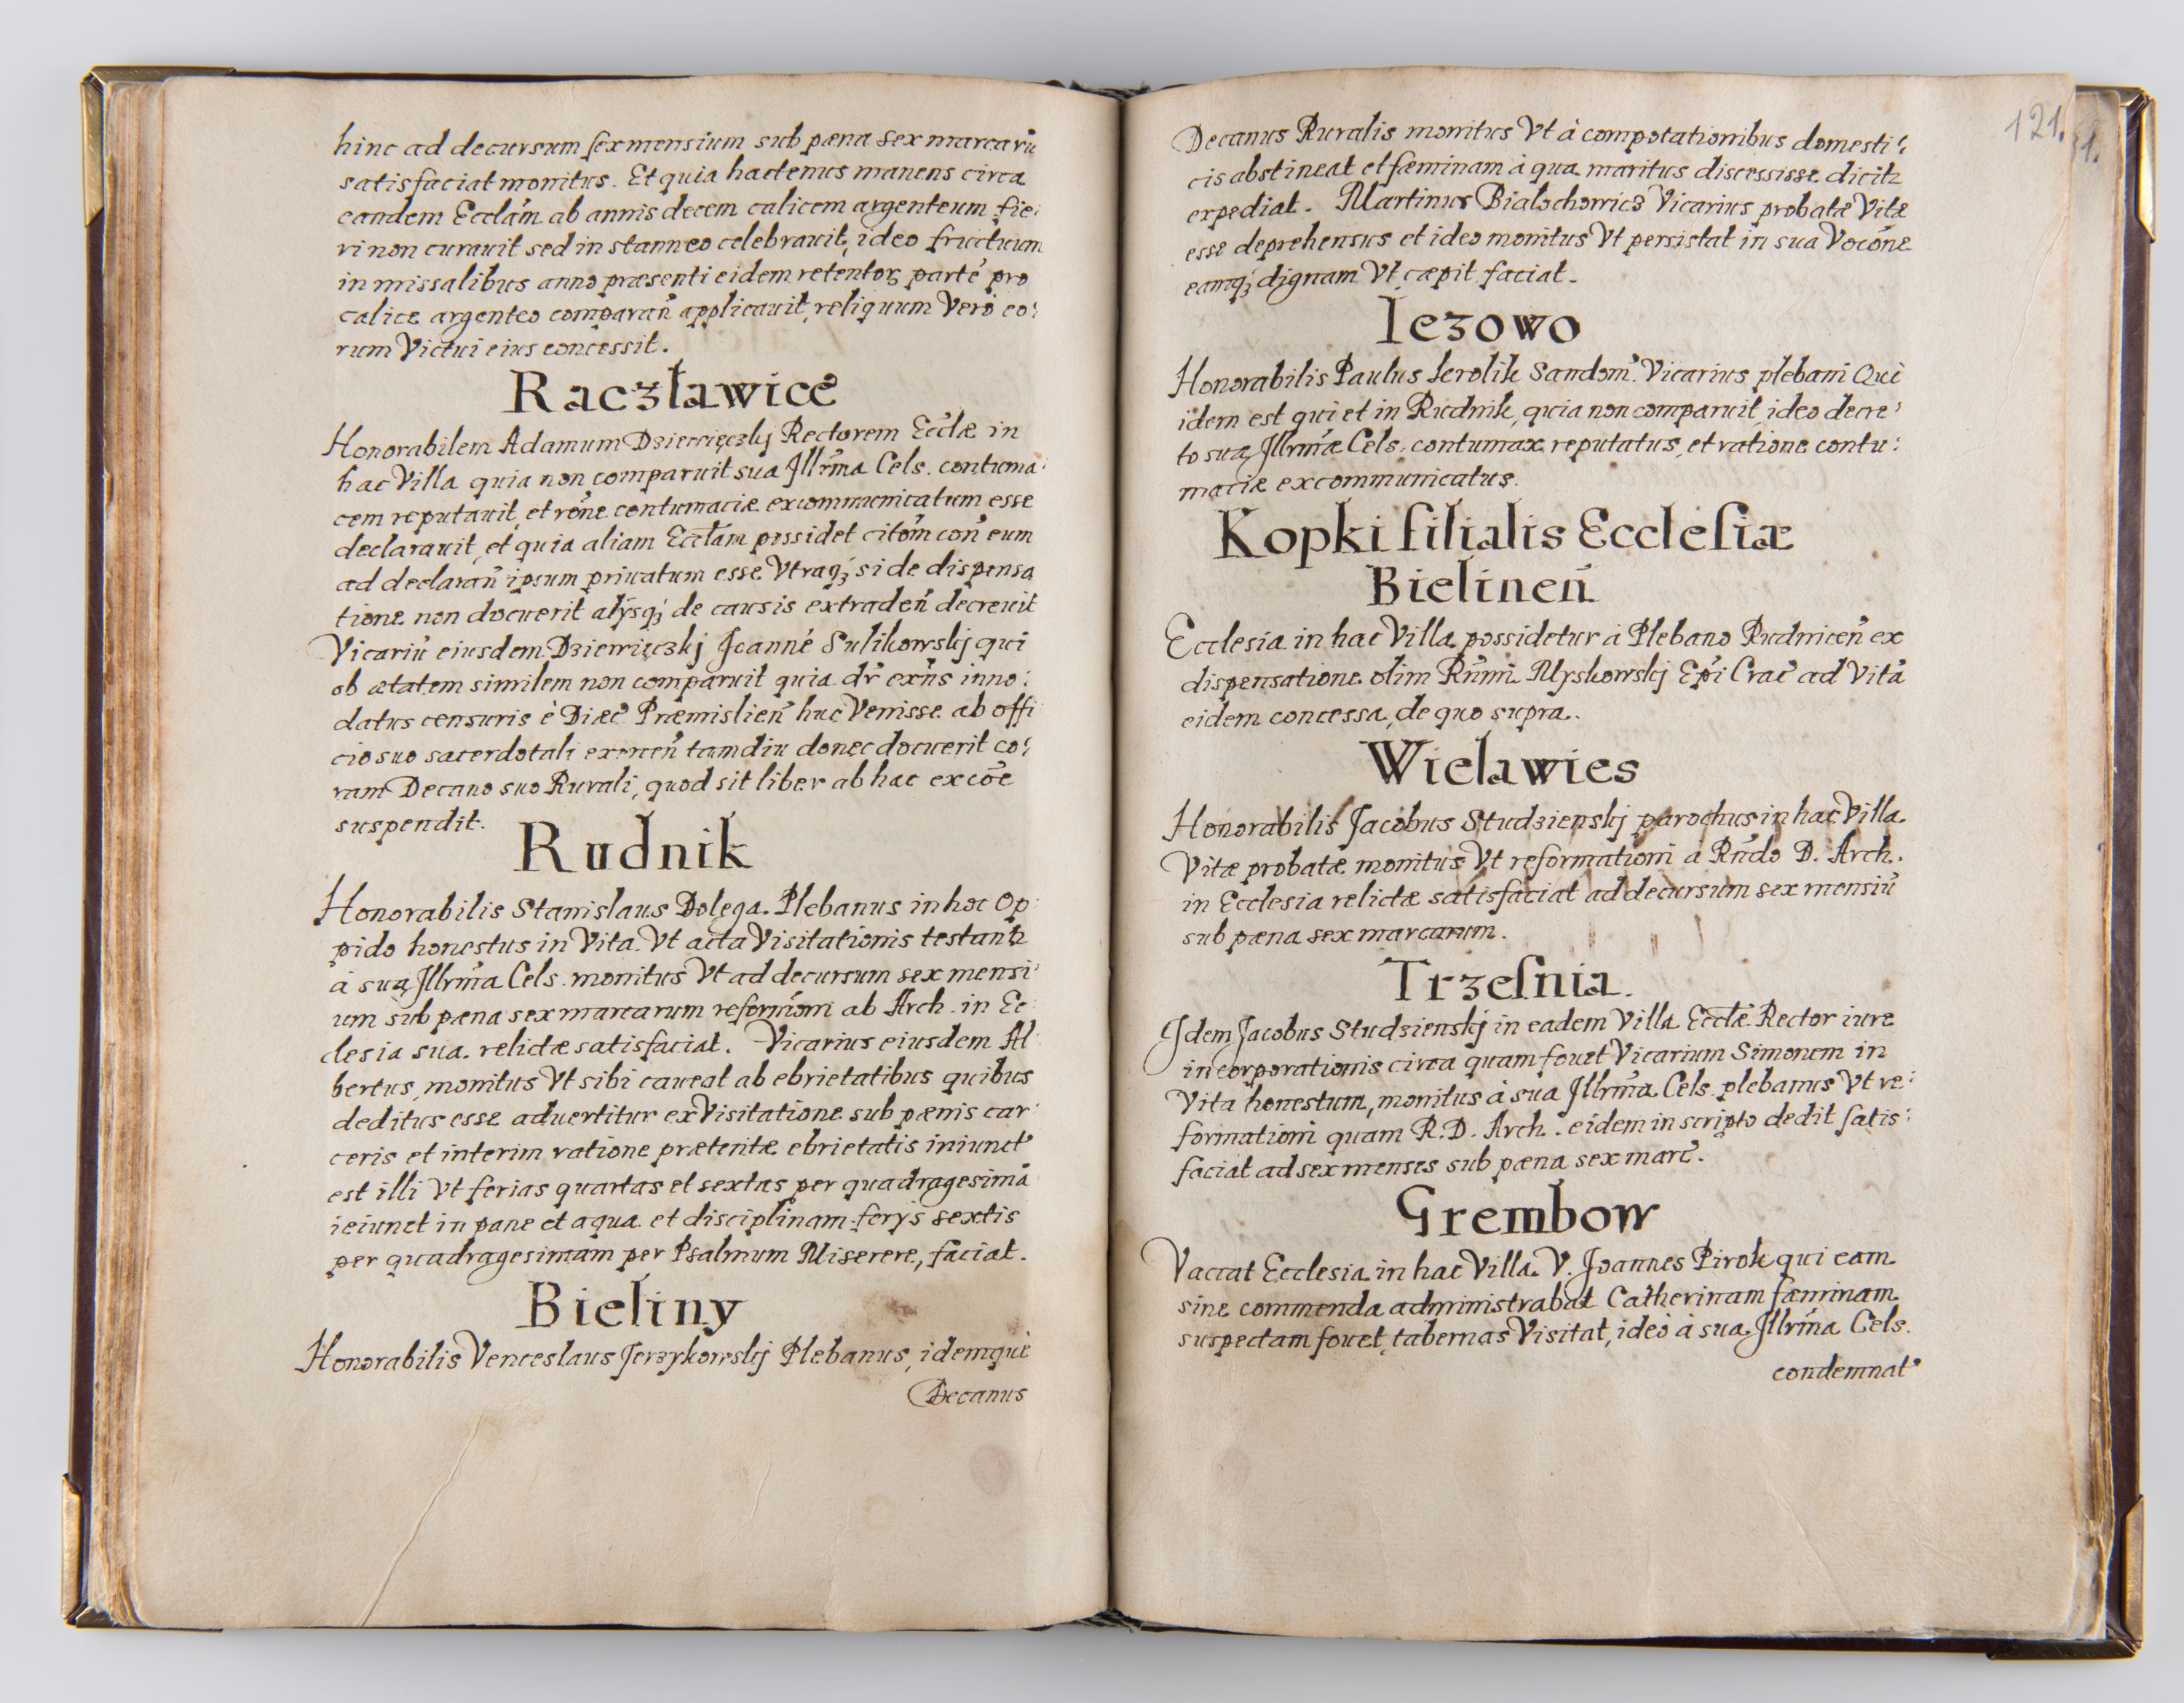 hinc ad decursum sex mensium sub pæna sex marcarũ
satisfaciat monitus. Et quia hactenus manens circa
eandem Ecclãm ab annis decem calicem argenteum fie:
ri non curauit sed in stanneo celebrauit, ideo fructuum
in missalibus anno præsenti eidem retentoꝝ partẽ pro
calice argenteo comparañ applicauit, reliquum Verò eo:
rum Victui eius concessit.
Raczławice
Honorabilem Adamum Dziewięczkj Rectorem Ecclæ in
hac Villa quia non comparuit sua Jllrma Cels. contuma:
cem reputauit, et rõne contumaciæ excommunicatum esse
declarauit, et quia aliam Ecclam possidet citõm coñ eum
ad declarañ ipsum priuatum esse Vtraq; si de dispensa
tione non docuerit alÿsq; de causis extradeñ decreuit
Vicariũ eiusdem Dziewięczkj Joannẽ Sulikowskj qui
ob ætatem similem non comparuit quia dr̃ exñs inno:
datus censuris è Diæc̃ Præmislieñ huc Venisse ab offi
cio suo sacerdotali exerceñ tamdiu donec docuerit co:
ram Decano suo Rurali, quod sit liber ab hac excõe
suspendit.
Rudnik
Honorabilis Stanislaus Dolęga Plebanus in hoc Op:
pido honestus in Vita Vt acta Visitationis testantꝛ
à sua Jllrma Cels. monitus Vt ad decursum sex mensi:
um sub pæna sex marcarum reformõni ab Arch. in Ec:
clesia sua relictæ satisfaciat. Vicarius eiusdem Al:
bertus, monitus Vt sibi caueat ab ebrietatibus quibus
deditus esse aduertitur ex Visitatione sub pænis car:
ceris et interim ratione prætentæ ebrietatis iniunct'
est illi Vt ferias quartas et sextas per quadragesimã
ieiunet in pane et aqua et disciplinam ferÿs sextis
per quadragesimam per Psalmum Miserere, faciat.
Bieliny
Honorabilis Venceslaus Jerzykowskj Plebanus, idemque
Decanus
121.
1.
Decanus Ruralis monitus Vt à compotationibus domesti:
cis abstineat et fæminam à qua maritus discessisse dicitꝛ
expediat. Martinus Białochowicz Vicarius probatæ Vitæ
esse deprehensus et ideo monitus Vt persistat in sua Vocõne
eamq; dignam Vt cæpit faciat.
Iezowo
Honorabilis Paulus Serolik Sandom̃. Vicarius plebani Qui
idem est qui et in Rudnik, quia non comparuit, ideo decre:
to suæ Jllrmæ Cels. contumax reputatus, et ratione contu:
maciæ excommunicatus.
Kopki filialis Ecclesiæ
Bielineñ
Ecclesia in hac Villa possidetur à Plebano Rudniceñ ex
dispensatione olim Rñmi Myskowskj Epi Crac̃ ad Vitã
eidem concessa, de quo supra.
Wielawies
Honorabilis Jacobus Studzienskj parochus in hac Villa
Vitæ probatæ monitus Vt reformationi à Rñdo D. Arch.
in Ecclesia relictæ satisfaciat ad decursum sex mensiũ
sub pæna sex marcarum.
Trzesnia
Jdem Jacobus Studzienskj in eadem Villa Ecclæ Rector iure
incorporationis circa quam fouet Vicarium Simonem in
Vita honestum, monitus à sua Jllrma Cels. plebanus Vt re:
formationi quam R. D. Arch. eidem in scripto dedit satis:
faciat ad sex menses sub pæna sex marc̃.
Grembow
Vaccat Ecclesia in hac Villa V. Joannes Pirok qui eam
sine commenda administrabat Catherinam fæminam
suspectam fouet, tabernas Visitat, ideò à sua Jllrma Cels.
condemnat'